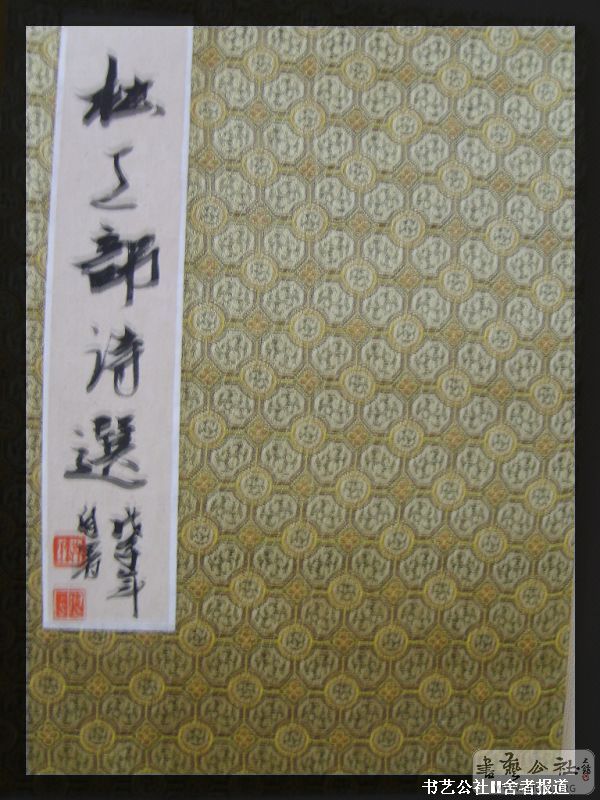 杜工部诗選
戊子年
自署
書藝公社
书艺公社II舍者报道